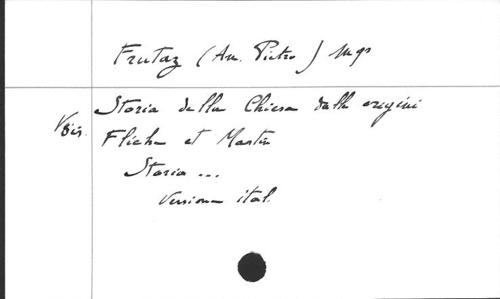 Frutaz (Am. Pietro) Mgr
Storia della Chiesa dalle origini
Voir. Fliche et Martin
Storia ...
Version ital.